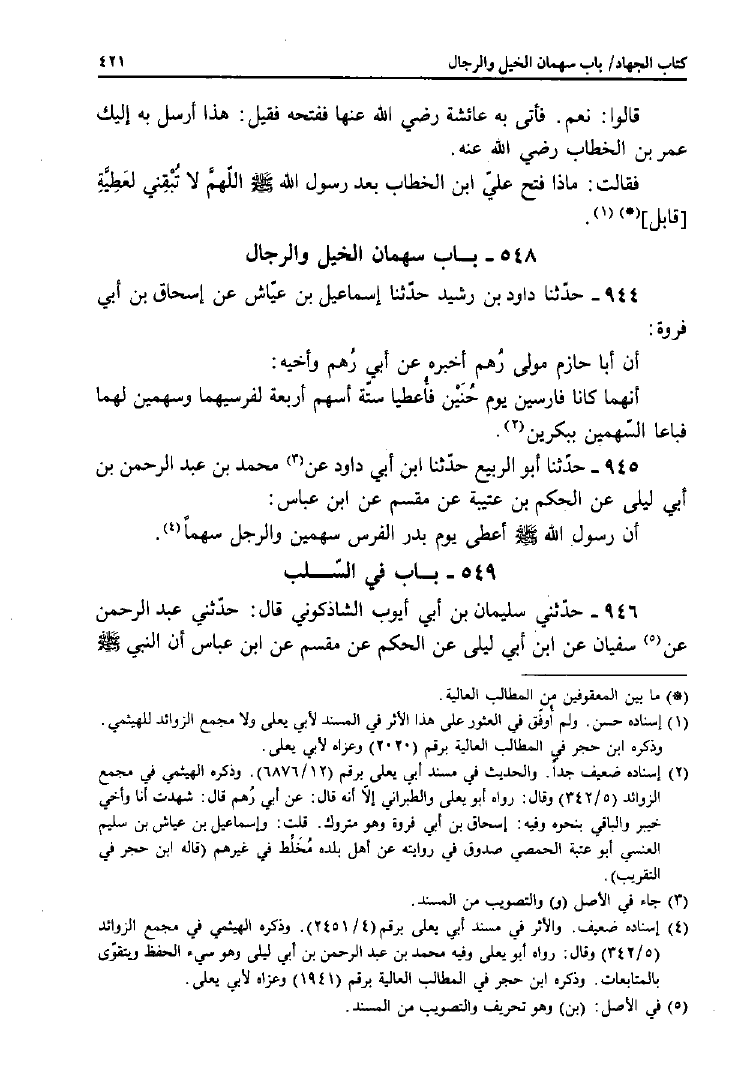 كتاب الجهاد/ باب سهمان الخيل والرجال ٤٢١
قالوا: نعم. فأتى به عائشة رضي الله عنها ففتحه فقيل: هذا أرسل به إليك
عمر بن الخطاب رضي الله عنه.
فقالت: ماذا فتح عليّ ابن الخطاب بعد رسول الله ﷺ اللّهمَّ لا تُبْقِني لعَطِيَّةِ
[قابل](*) (١).
٥٤٨ ـ بـاب سهمان الخيل والرجال
٩٤٤ ـ حدّثنا داود بن رشيد حدّثنا إسماعيل بن عيّاش عن إسحاق بن أبي
فروة:
أن أبا حازم مولى رُهم أخبره عن أبي رُهم وأخيه:
أنهما كانا فارسين يوم حُنَيْن فأُعطيا ستّة أسهم أربعة لفرسيهما وسهمين لهما
فباعا السّهمين ببكرين(٢).
٩٤٥ ـ حدّثنا أبو الربيع حدّثنا ابن أبي داود عن(٣) محمد بن عبد الرحمن بن
أبي ليلى عن الحكم بن عتيبة عن مقسم عن ابن عباس:
أن رسول الله ﷺ أعطى يوم بدر الفرس سهمين والرجل سهماً(٤).
٥٤٩ ـ بـاب في السّـلب
٩٤٦ ـ حدّثني سليمان بن أبي أيوب الشاذكوني قال: حدّثني عبد الرحمن
عن(٥) سفيان عن ابن أبي ليلى عن الحكم عن مقسم عن ابن عباس أن النبي ﷺ
(*) ما بين المعقوفين من المطالب العالية.
(١) إسناده حسن. ولم أُوفّق في العثور على هذا الأثر في المسند لأبي يعلى ولا مجمع الزوائد للهيثمي.
وذكره ابن حجر في المطالب العالية برقم (٢٠٢٠) وعزاه لأبي يعلى.
(٢) إسناده ضعيف جداً. والحديث في مسند أبي يعلى برقم (٦٨٧٦/١٢). وذكره الهيثمي في مجمع
الزوائد (٣٤٢/٥) وقال: رواه أبو يعلى والطبراني إلّا أنه قال: عن أبي رُهم قال: شهدت أنا وأخي
خيبر والباقي بنحوه وفيه: إسحاق بن أبي فروة وهو متروك. قلت: وإسماعيل بن عياش بن سليم
العنسي أبو عتبة الحمصي صدوق في روايته عن أهل بلده مُخَلِّط في غيرهم (قاله ابن حجر في
التقريب).
(٣) جاء في الأصل (و) والتصويب من المسند.
(٤) إسناده ضعيف. والأثر في مسند أبي يعلى برقم(٢٤٥١/٤). وذكره الهيثمي في مجمع الزوائد
(٣٤٢/٥) وقال: رواه أبو يعلى وفيه محمد بن عبد الرحمن بن أبي ليلى وهو سيء الحفظ ويتقوّى
بالمتابعات. وذكره ابن حجر في المطالب العالية برقم (١٩٤١) وعزاه لأبي يعلى.
(٥) في الأصل: (بن) وهو تحريف والتصويب من المسند.